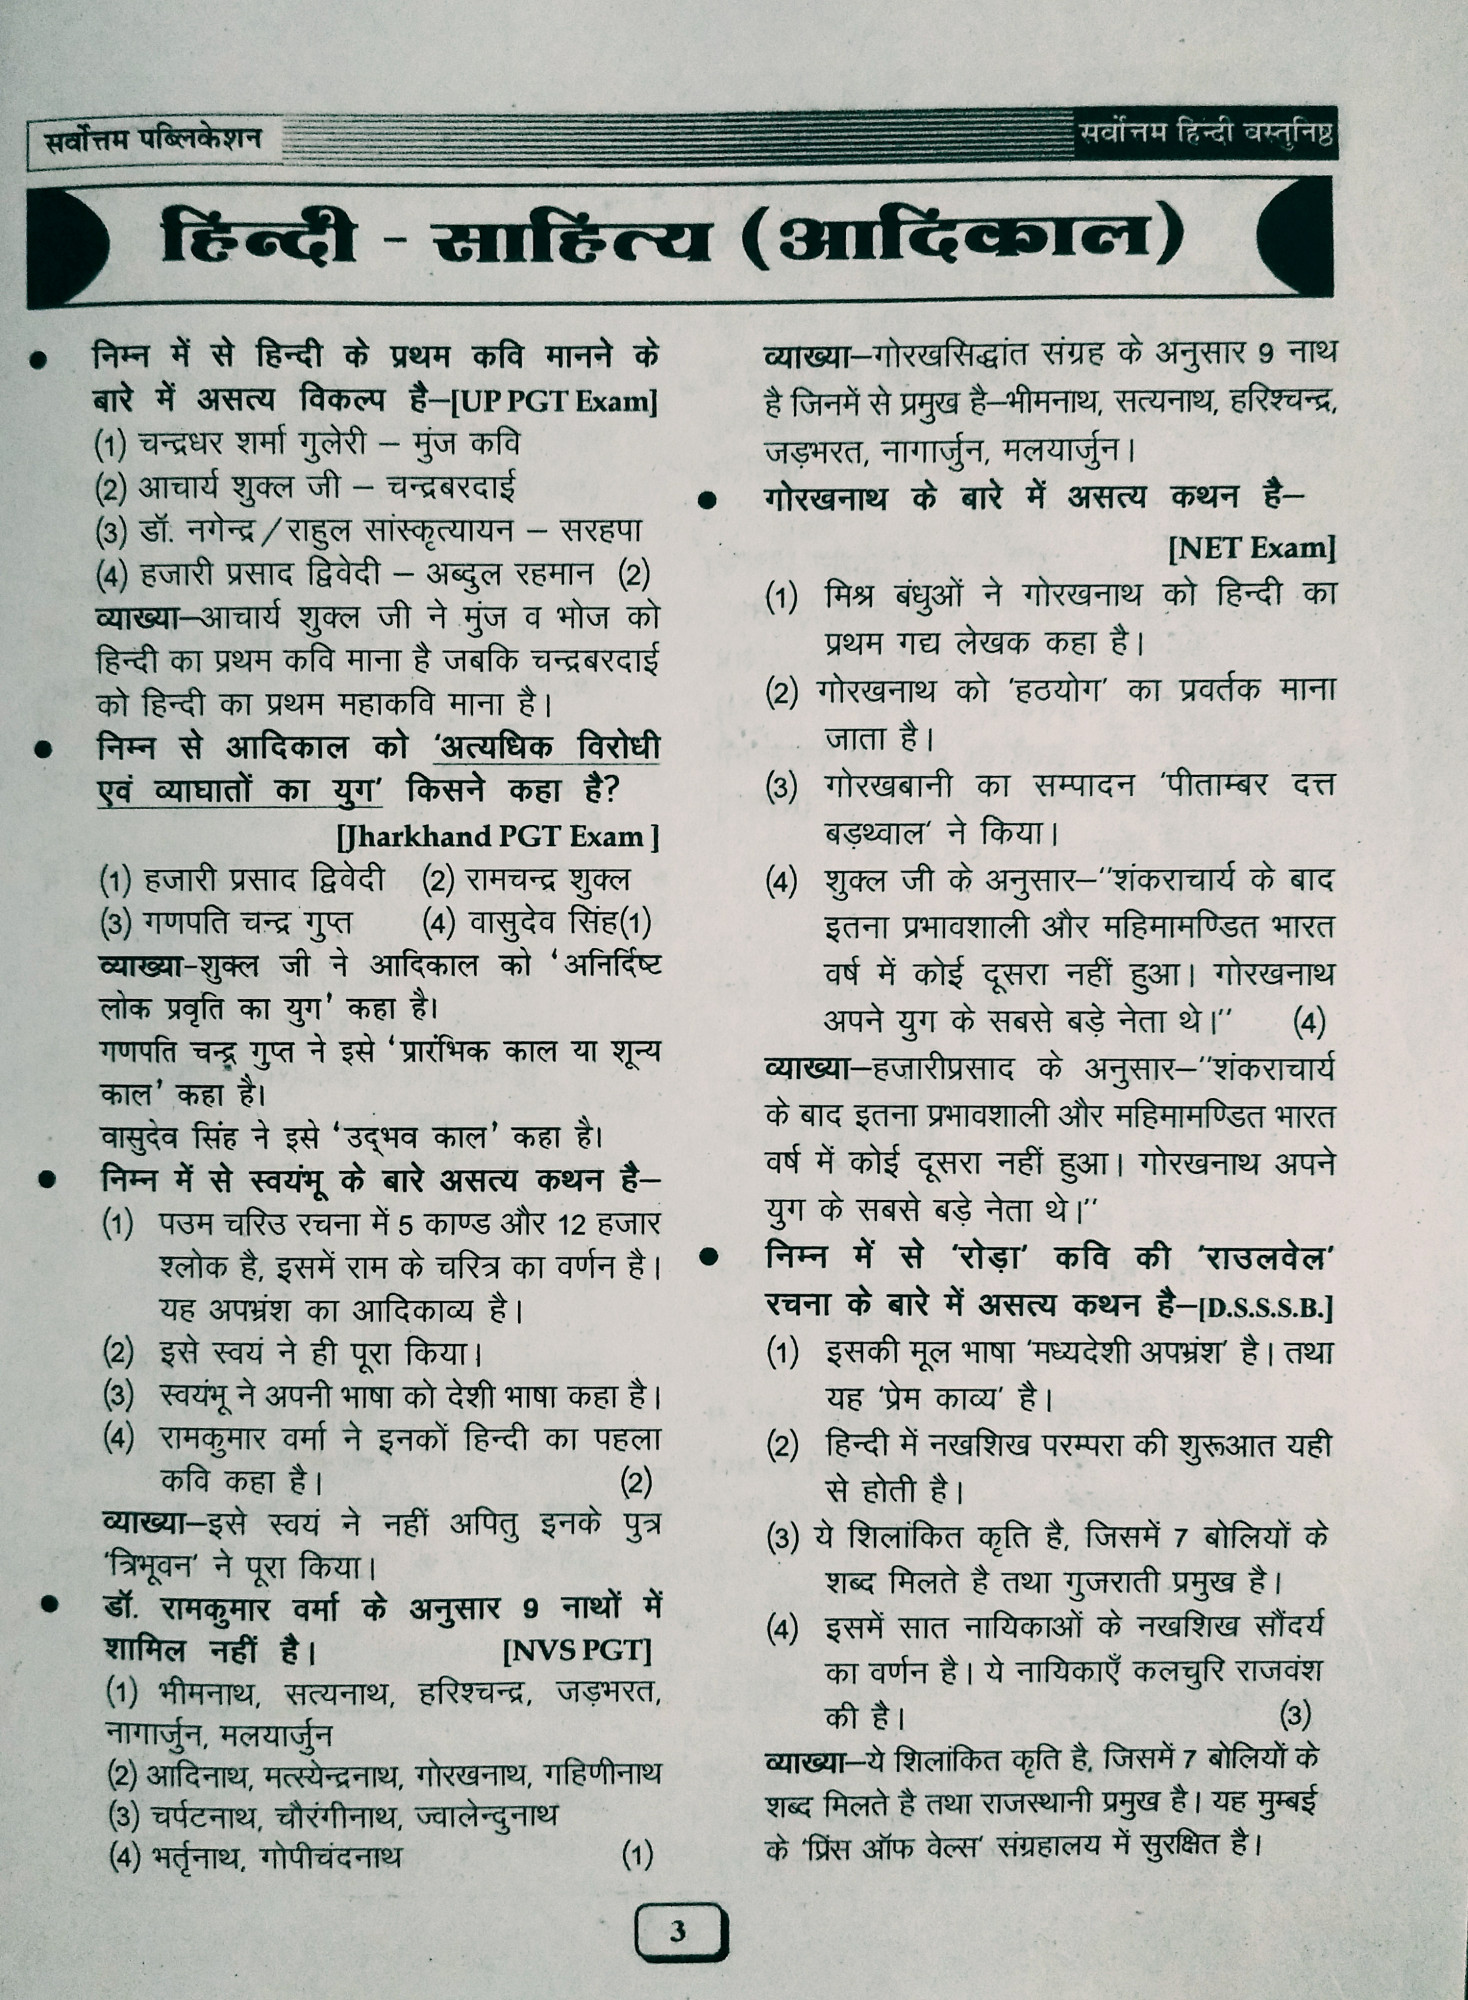 सर्वोत्तम पब्लिकेशन
सर्वोत्तम हिन्दी वस्तुनिष्ठ
हिन्दी - साहित्य (आदिकाल)
● निम्न में से हिन्दी के प्रथम कवि मानने के
बारे में असत्य विकल्प है–[UP PGT Exam]
(1) चन्द्रधर शर्मा गुलेरी – मुंज कवि
(2) आचार्य शुक्ल जी – चन्द्रबरदाई
(3) डॉ. नगेन्द्र / राहुल सांस्कृत्यायन – सरहपा
(4) हजारी प्रसाद द्विवेदी – अब्दुल रहमान (2)
व्याख्या–आचार्य शुक्ल जी ने मुंज व भोज को
हिन्दी का प्रथम कवि माना है जबकि चन्द्रबरदाई
को हिन्दी का प्रथम महाकवि माना है।
● निम्न से आदिकाल को 'अत्यधिक विरोधी
एवं व्याघातों का युग' किसने कहा है?
[Jharkhand PGT Exam ]
(1) हजारी प्रसाद द्विवेदी (2) रामचन्द्र शुक्ल
(3) गणपति चन्द्र गुप्त (4) वासुदेव सिंह(1)
व्याख्या-शुक्ल जी ने आदिकाल को 'अनिर्दिष्ट
लोक प्रवृति का युग' कहा है।
गणपति चन्द्र गुप्त ने इसे 'प्रारंभिक काल या शून्य
काल' कहा है।
वासुदेव सिंह ने इसे 'उद्भव काल' कहा है।
● निम्न में से स्वयंभू के बारे असत्य कथन है–
(1) पउम चरिउ रचना में 5 काण्ड और 12 हजार
श्लोक है, इसमें राम के चरित्र का वर्णन है।
यह अपभ्रंश का आदिकाव्य है।
(2) इसे स्वयं ने ही पूरा किया।
(3) स्वयंभू ने अपनी भाषा को देशी भाषा कहा है।
(4) रामकुमार वर्मा ने इनकों हिन्दी का पहला
कवि कहा है। (2)
व्याख्या–इसे स्वयं ने नहीं अपितु इनके पुत्र
'त्रिभूवन' ने पूरा किया।
● डॉ. रामकुमार वर्मा के अनुसार 9 नाथों में
शामिल नहीं है। [NVS PGT]
(1) भीमनाथ, सत्यनाथ, हरिश्चन्द्र, जड़भरत,
नागार्जुन, मलयार्जुन
(2) आदिनाथ, मत्स्येन्द्रनाथ, गोरखनाथ, गहिणीनाथ
(3) चर्पटनाथ, चौरंगीनाथ, ज्वालेन्दुनाथ
(4) भर्तृनाथ, गोपीचंदनाथ (1)
व्याख्या–गोरखसिद्धांत संग्रह के अनुसार 9 नाथ
है जिनमें से प्रमुख है–भीमनाथ, सत्यनाथ, हरिश्चन्द्र,
जड़भरत, नागार्जुन, मलयार्जुन।
● गोरखनाथ के बारे में असत्य कथन है–
[NET Exam]
(1) मिश्र बंधुओं ने गोरखनाथ को हिन्दी का
प्रथम गद्य लेखक कहा है।
(2) गोरखनाथ को 'हठयोग' का प्रवर्तक माना
जाता है।
(3) गोरखबानी का सम्पादन 'पीताम्बर दत्त
बड़थ्वाल' ने किया।
(4) शुक्ल जी के अनुसार–''शंकराचार्य के बाद
इतना प्रभावशाली और महिमामण्डित भारत
वर्ष में कोई दूसरा नहीं हुआ। गोरखनाथ
अपने युग के सबसे बड़े नेता थे।'' (4)
व्याख्या–हजारीप्रसाद के अनुसार–''शंकराचार्य
के बाद इतना प्रभावशाली और महिमामण्डित भारत
वर्ष में कोई दूसरा नहीं हुआ। गोरखनाथ अपने
युग के सबसे बड़े नेता थे।''
● निम्न में से 'रोड़ा' कवि की 'राउलवेल'
रचना के बारे में असत्य कथन है–[D.S.S.S.B.]
(1) इसकी मूल भाषा 'मध्यदेशी अपभ्रंश' है। तथा
यह 'प्रेम काव्य' है।
(2) हिन्दी में नखशिख परम्परा की शुरूआत यही
से होती है।
(3) ये शिलांकित कृति है, जिसमें 7 बोलियों के
शब्द मिलते है तथा गुजराती प्रमुख है।
(4) इसमें सात नायिकाओं के नखशिख सौंदर्य
का वर्णन है। ये नायिकाएँ कलचुरि राजवंश
की है। (3)
व्याख्या–ये शिलांकित कृति है, जिसमें 7 बोलियों के
शब्द मिलते है तथा राजस्थानी प्रमुख है। यह मुम्बई
के 'प्रिंस ऑफ वेल्स' संग्रहालय में सुरक्षित है।
3